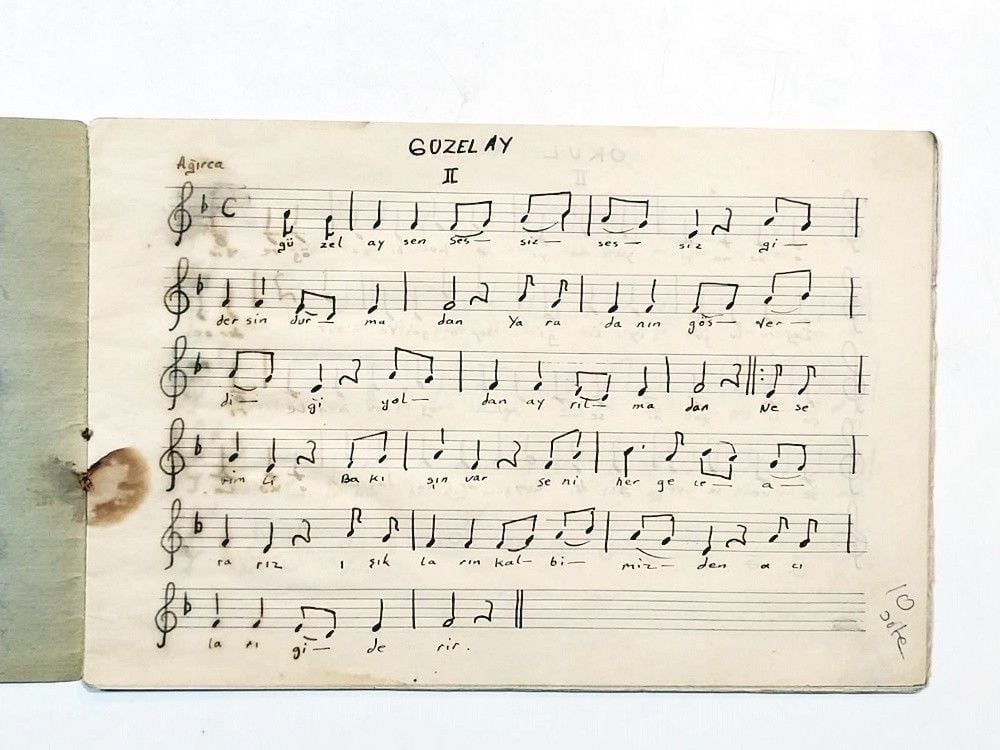 GÜZEL AY
II
Ağırca
C
gü zel ay sen ses— siz— ses— siz gi—
der sin dur— ma dan Ya ra da nın gös— ter—
di— ği yol— dan ay rıl— ma dan Ne se
rim li Ba kı şın var se ni her ge ce— a—
ra rız ı şık la rın kal— bi— miz— den a cı
la rı gi— de rir.
10